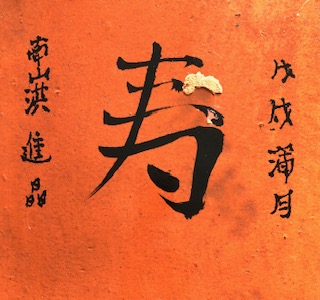 戊戌蒲月
寿
南山淇進晶